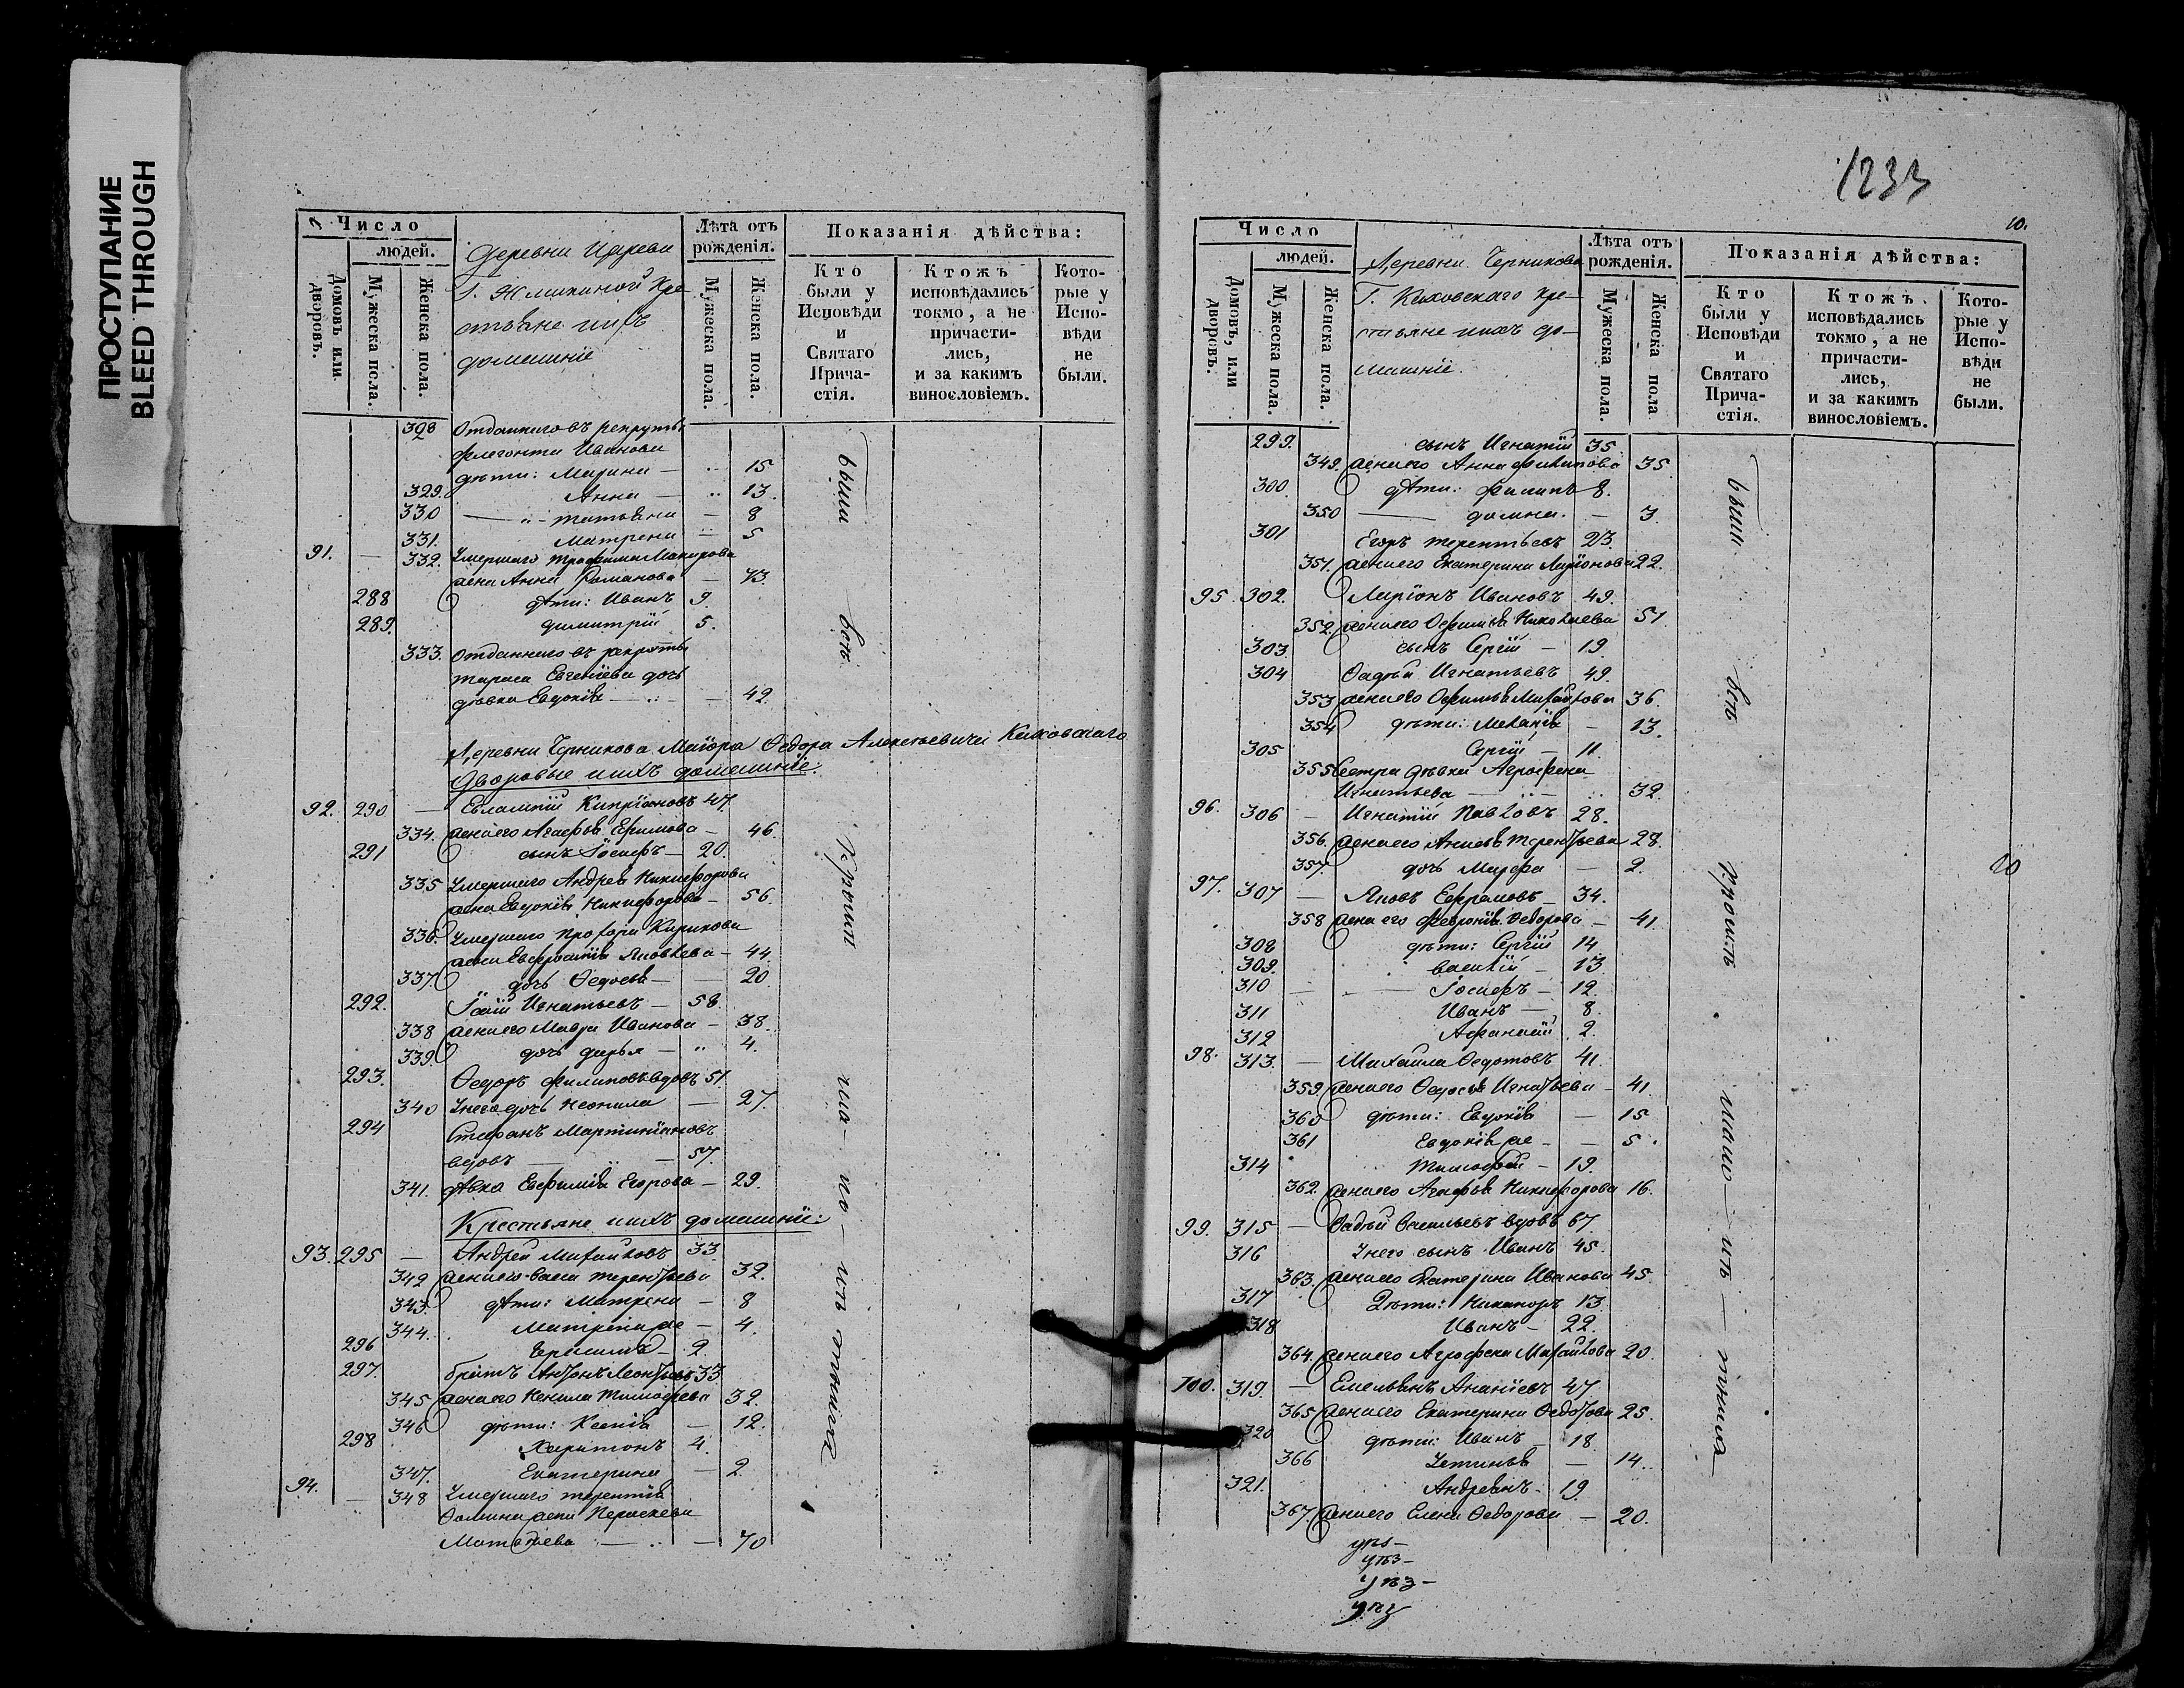 ПРОСТУПАНИЕ
BLEED THROUGH
Число
людей.
Домовъ или дворовъ.
Мужеска пола.
Женска пола.
деревни
Г. Жмакиной кре
стьяне ихъ
домашніе
Лѣта отъ рожденія.
Мужеска пола.
Женска пола.
Показанія дѣйства:
Кто были у Исповѣди и Святаго Причастія.
Ктожъ исповѣдались токмо, а не причастились, и за какимъ винословіемъ.
Которые у Исповѣди не были.
328 Отданнаго въ рекруты
Флегонта Иванова
дѣти: Марина — 15
329. Анна — 13.
330 Татьяна — 8
331. Матрена — 5
91. — 332. Умершаго Трофима Макарова
жена Анна Романова — 43.
288 дѣти: Иванъ 9.
289. Димитрій 5.
333. Отданнаго въ рекруты
Тараса Евгеніева дочь
дѣвка Евдокія — 42.
Деревни Черникова Маіора Ѳедора Алексѣевича Каховскаго
Дворовые ихъ домашніе.
92. 290 — Евлампій Кипріановъ 47.
334. жена его Агафья Ефимова — 46.
291 сынъ Іосифъ — 20.
335 Умершаго Андрея Никифорова
жена Евдокія Никифорова — 56.
336. Умершаго Прохора Кирикова
жена Евфросинія Яковлева — 44.
337. дочь Ѳедосья — 20
292. Игнатьевъ — 58.
338 жена его Мавра Иванова — 38.
339. дочь Дарья — 4.
293. Ѳедоръ Филиповъ вдовъ 51.
340 У него дочь Неонила — 27.
294 Стефанъ Мартиніановъ
вдовъ — 57.
341. дѣвка Евфимія Егорова — 29.
Крестьяне ихъ домашніе:
93. 295 — Андрей Михайловъ 33.
342 жена его Васса Терентьева 32.
343. дѣти: Матрена — 8
344. Матрена же — 4.
296 2.
297. братъ Антонъ Леонтьевъ 33
345 жена его Ненила Тимофеева 32.
346 дѣти: Ксенія — 12.
298 Харитонъ 4.
347. Екатерина — 2.
94. — 348 Умершаго Терентія
Ѳомина жена Параскева
Матвѣева — 70
были
всѣ
1233
10.
Число
людей.
Домовъ, или дворовъ.
Мужеска пола.
Женска пола.
Деревни Черникова
Г. Каховскаго кре-
стьяне ихъ до-
машніе.
Лѣта отъ рожденія.
Мужеска пола.
Женска пола
Показанія дѣйства:
Кто были у Исповѣди и Святаго Причастія.
Ктожъ исповѣдались токмо, а не причастились, и за какимъ винословіемъ.
Которые у Исповѣди не были.
299. сынъ Игнатій 35
349. жена его Анна Филипова 35.
300. дѣти: Филипъ 8.
350 Домна. — 3.
301 Егоръ Терентьевъ 23.
351. жена его Екатерина Ларіонова 22.
95. 302. Ларіонъ Ивановъ 49.
352. жена его Офимья Николаева 51
303. сынъ Сергій — 19.
304 Ѳадѣй Игнатьевъ 49.
353 жена его Офимья Михайлова 36.
354 дѣти: Меланія — 13.
305 Сергій — 11.
355 Сестра дѣвка Агрофена
Игнатьева — 32.
96. 306 — Игнатій Павловъ 28.
356. жена его Анисья Терентьева 28.
357. дочь Марфа — 2.
97. 307 — Яковъ Ефремовъ — 34.
358 жена его Февронія Ѳедорова — 41.
308 дѣти: Сергій 14.
309. Василій — 13
310 — Іосифъ — 12.
311 Иванъ — 8.
312 Афанасій 2.
98. 313. — Михайла Ѳедотовъ 41.
359. жена его Ѳедосья Игнатьева — 41.
360 дѣти: Евдокія — 15
361 Евдокія же — 5.
314 Тимофей — 19.
362. жена его Агафья Никифорова 16.
99. 315 — Ѳадѣй Васильевъ вдовъ 67
316 У него сынъ Иванъ 45.
363. жена его Екатерина Иванова 45.
317 Дѣти: Никаноръ 13.
318 Иванъ — 22.
364. жена его Агрофена Михайлова 20.
100. 319. — Емельянъ Ананіевъ 47.
365 жена его Екатерина Ѳедотова 25.
320 дѣти: Иванъ — 18.
366 Устинья — 14.
321. Андреянъ — 19.
367. жена его Елена Ѳедорова — 20.
были
всѣ
кромѣ
20